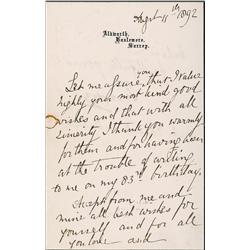 Augst 11th 1892
Aldworth,
Haslemere,
Surrey.
you
Let me assure, that I value
highly your most kind good
wishes and that with all
sincerity I thank you warmly
for them and for having been
at the trouble of writing
to me on my 83rd birthday.
Accept from me and
mine all best wishes for
yourself and for all
you love and